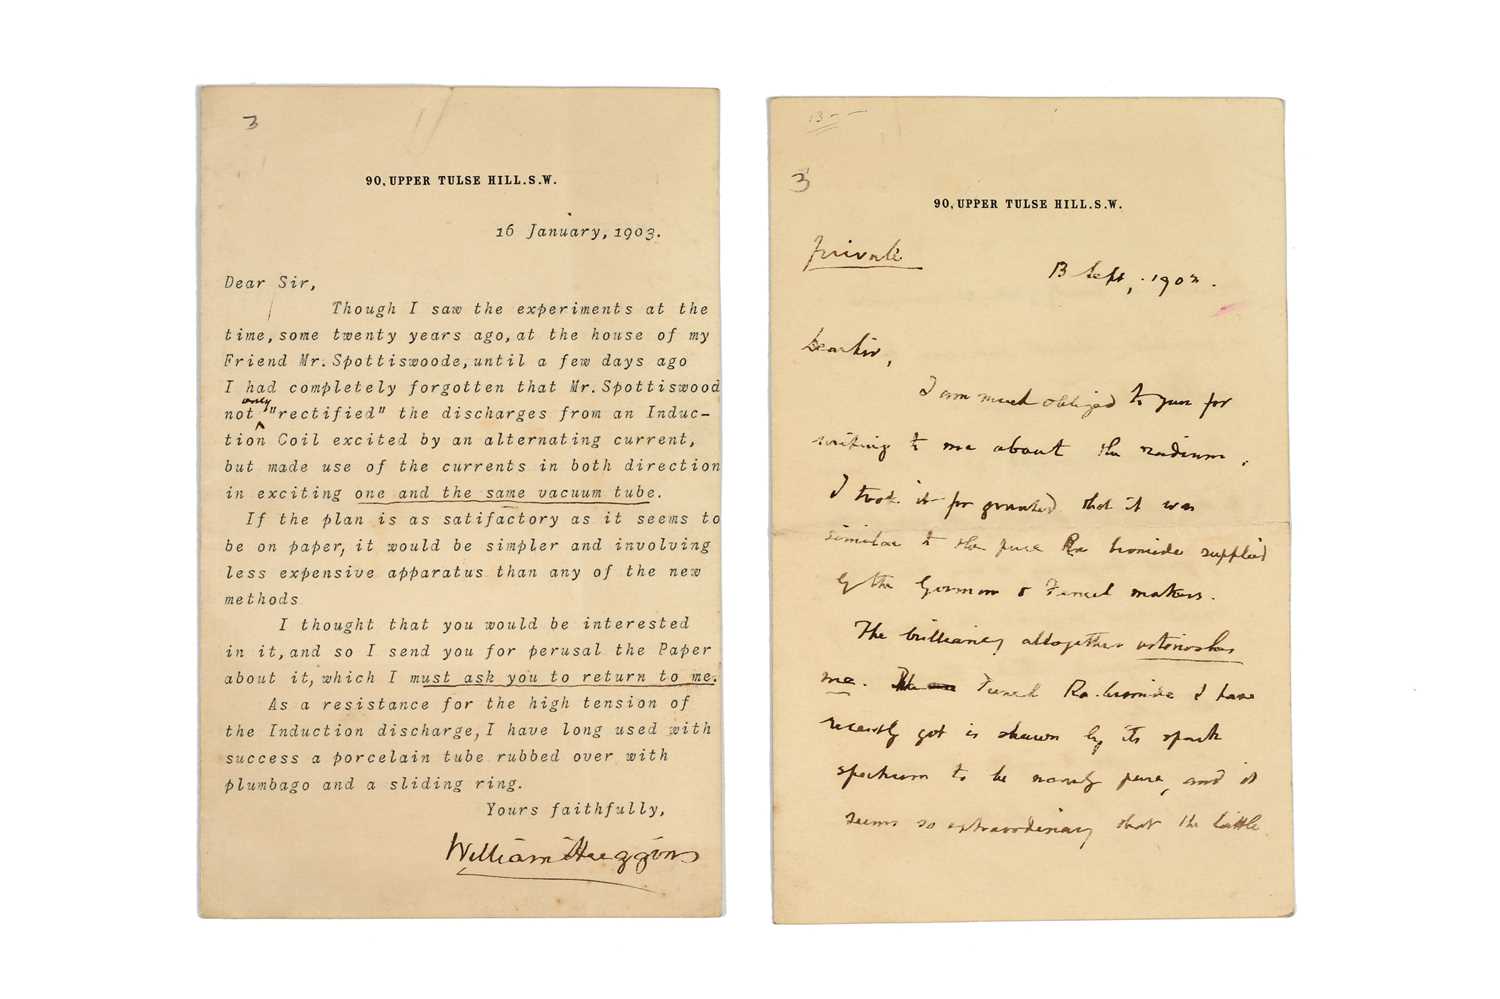 3
90, UPPER TULSE HILL. S.W.
16 January, 1903.
Dear Sir,
Though I saw the experiments at the
time, some twenty years ago, at the house of my
Friend Mr. Spottiswoode, until a few days ago
I had completely forgotten that Mr. Spottiswood
not only "rectified" the discharges from an Induc-
tion Coil excited by an alternating current,
but made use of the currents in both direction
in exciting one and the same vacuum tube.
If the plan is as satisfactory as it seems to
be on paper, it would be simpler and involving
less expensive apparatus than any of the new
methods
I thought that you would be interested
in it, and so I send you for perusal the Paper
about it, which I must ask you to return to me.
As a resistance for the high tension of
the Induction discharge, I have long used with
success a porcelain tube rubbed over with
plumbago and a sliding ring.
Yours faithfully,
William Huggins
13 - -
3
90, UPPER TULSE HILL. S.W.
Private
13 Sept, .
Dear Sir,
I am much obliged to you for
writing to me about the radium.
I took it for granted that it was
similar to the pure Ra bromide supplied
by the German & French makers.
The brilliancy altogether astonishes
me. French Ra-bromide I have
recently got is shown by its spark
spectrum to be nearly pure, and it
seems so extraordinary that the little